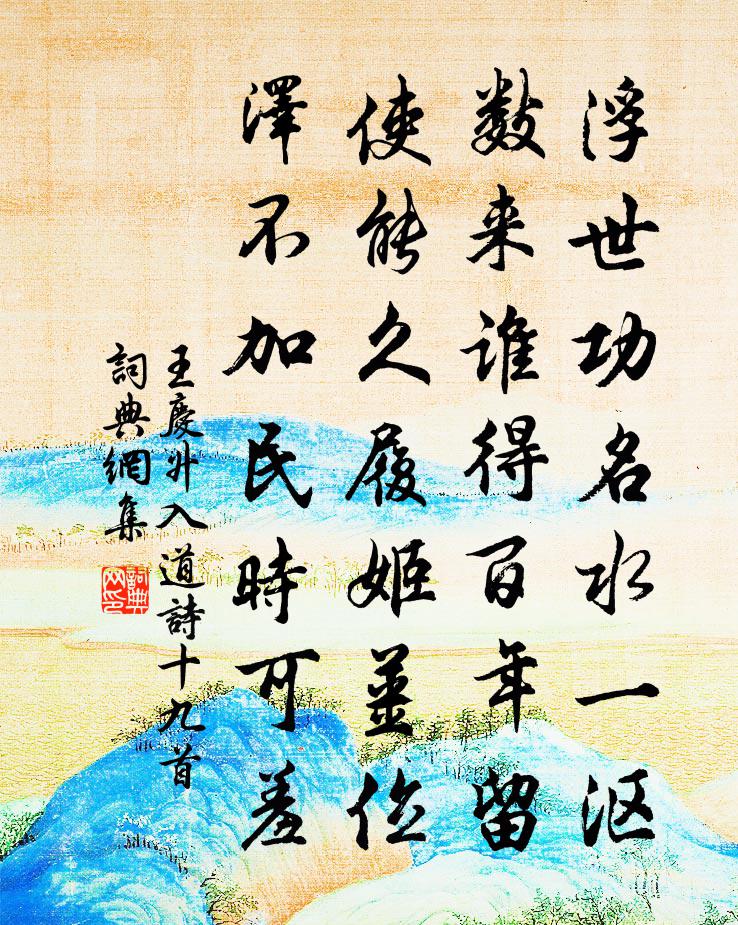 浮世功名水一沤
数来谁得百年留
使能久履姬姜位
澤不加民時可羞
王慶升入道詩十九首
詞典網集
詞典
网印